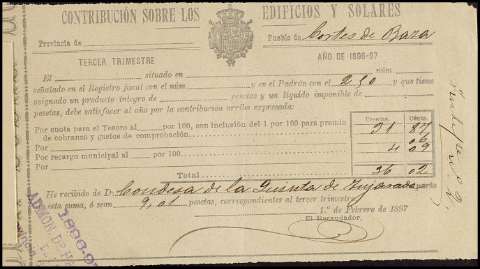 CONTRIBUCIÓN SOBRE LOS EDIFICIOS Y SOLARES
Provincia de Pueblo de Cortes de Baza
TERCER TRIMESTRE AÑO DE 1896-97
El situado en núm.
señalado en el Registro fiscal con el núm. y en el Padrón con el 250 y que tiene
asignado un producto íntegro de pesetas y un líquido imponible de
pesetas, debe satisfacer al año por la contribución arriba expresada:
Pesetas. Cénts.
Por cuota para el Tesoro al por 100, con inclusión del 1 por 100 para premio
de cobranza y gastos de comprobación. 31 87
Por
Por recargo municipal al por 100 4 09
Por
Total 36 02
He recibido de D. Condesa de la Quinta de
esta suma, ó sean 9,01 pesetas, correspondientes al tercer trimestre
1.º de Febrero de 1897
El Recaudador,
1896-97
ADMON DE